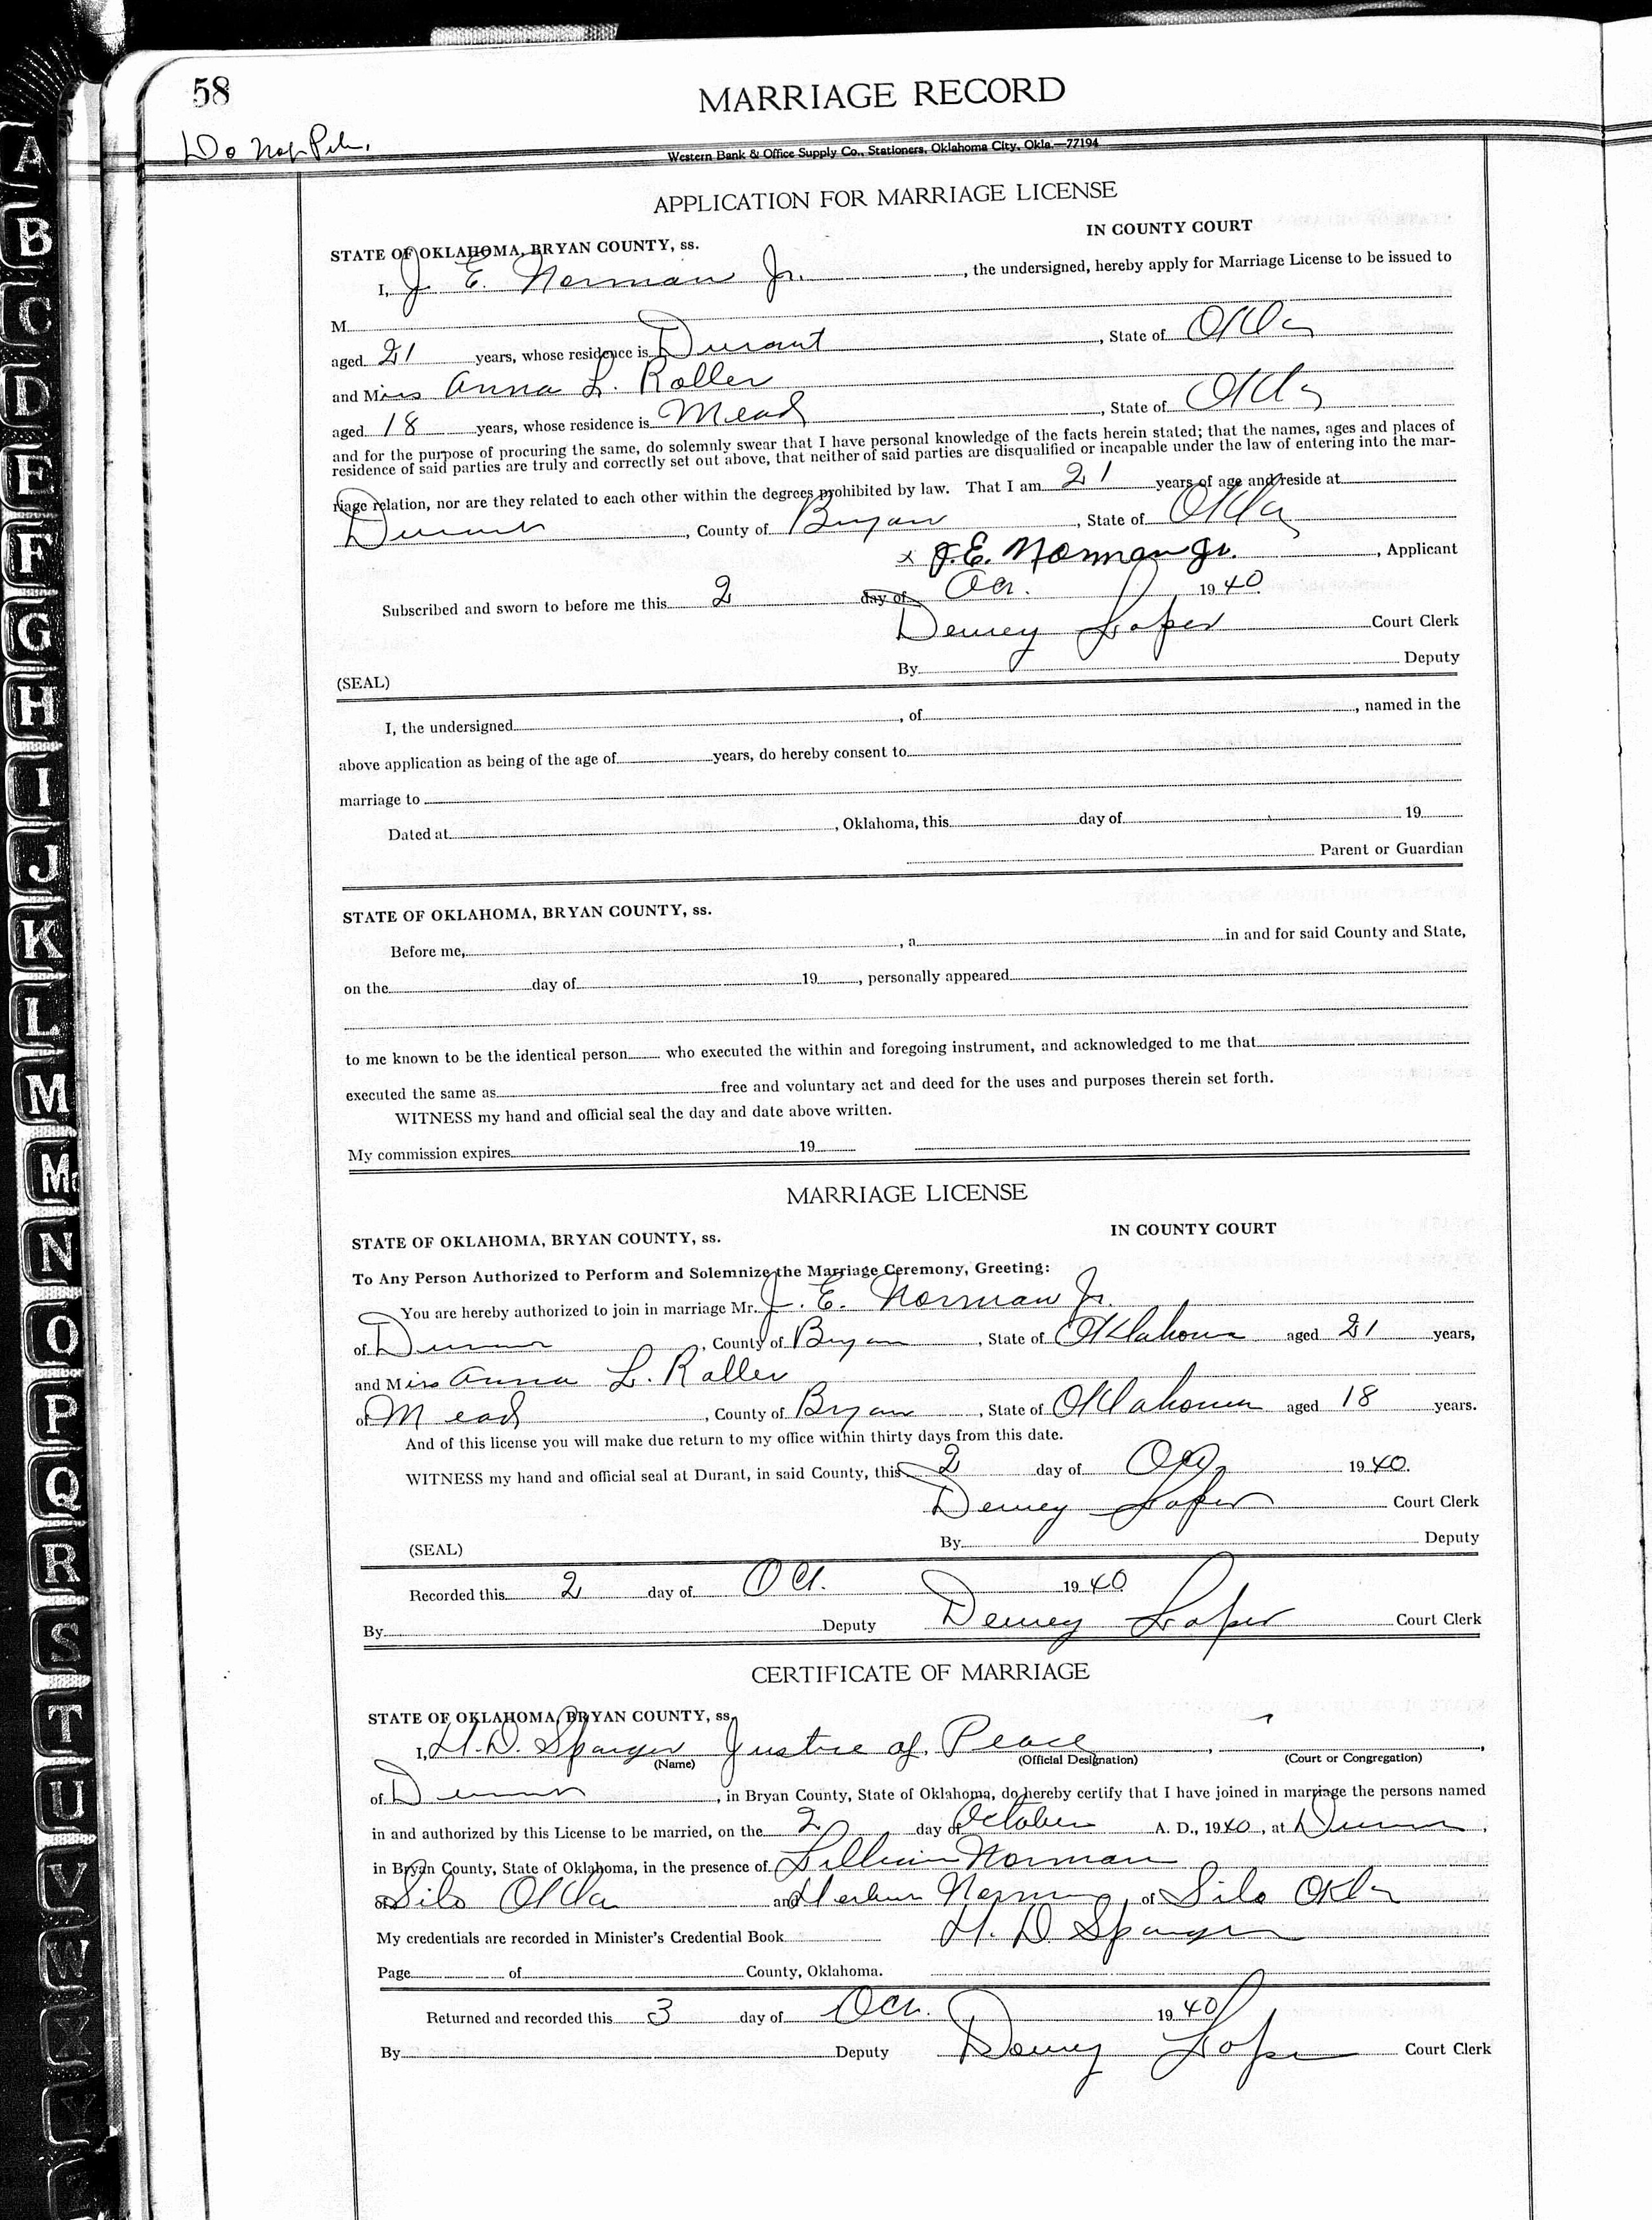 58
MARRIAGE RECORD
Do Not Pub.
Western Bank & Office Supply Co., Stationers, Oklahoma City, Okla.—77194
APPLICATION FOR MARRIAGE LICENSE
IN COUNTY COURT
STATE OF OKLAHOMA, BRYAN COUNTY, ss.
I, J. E. Norman Jr. , the undersigned, hereby apply for Marriage License to be issued to
M
aged 21 years, whose residence is Durant , State of Okla
and Miss Anna L. Roller
aged 18 years, whose residence is Mead , State of Okla
and for the purpose of procuring the same, do solemnly swear that I have personal knowledge of the facts herein stated; that the names, ages and places of
residence of said parties are truly and correctly set out above, that neither of said parties are disqualified or incapable under the law of entering into the mar-
riage relation, nor are they related to each other within the degrees prohibited by law. That I am 21 years of age and reside at
Durant , County of Bryan , State of Okla
x J.E. Norman Jr. , Applicant
Subscribed and sworn to before me this 2 day of Oct. 1940
Dewey Loper Court Clerk
By Deputy
(SEAL)
I, the undersigned , of , named in the
above application as being of the age of years, do hereby consent to
marriage to
Dated at , Oklahoma, this day of 19
Parent or Guardian
STATE OF OKLAHOMA, BRYAN COUNTY, ss.
Before me, , a in and for said County and State,
on the day of 19 , personally appeared
to me known to be the identical person who executed the within and foregoing instrument, and acknowledged to me that
executed the same as free and voluntary act and deed for the uses and purposes therein set forth.
WITNESS my hand and official seal the day and date above written.
My commission expires 19
MARRIAGE LICENSE
STATE OF OKLAHOMA, BRYAN COUNTY, ss. IN COUNTY COURT
To Any Person Authorized to Perform and Solemnize the Marriage Ceremony, Greeting:
You are hereby authorized to join in marriage Mr. J. E. Norman Jr.
of Durant , County of Bryan , State of Oklahoma aged 21 years,
and Miss Anna L. Roller
of Mead , County of Bryan , State of Oklahoma aged 18 years.
And of this license you will make due return to my office within thirty days from this date.
WITNESS my hand and official seal at Durant, in said County, this 2 day of Oct. 1940.
Dewey Loper Court Clerk
(SEAL) By Deputy
Recorded this 2 day of Oct. 1940
By Deputy Dewey Loper Court Clerk
CERTIFICATE OF MARRIAGE
STATE OF OKLAHOMA, BRYAN COUNTY, ss.
I, H. D. Sparger Justice of Peace , ,
(Name) (Official Designation) (Court or Congregation)
of Durant , in Bryan County, State of Oklahoma, do hereby certify that I have joined in marriage the persons named
in and authorized by this License to be married, on the 2 day of October A. D., 1940, at Durant ,
in Bryan County, State of Oklahoma, in the presence of Lillian Norman
of Silo Okla and Norman, of Silo Okla
My credentials are recorded in Minister's Credential Book H. D. Sparger
Page of County, Oklahoma.
Returned and recorded this 3 day of Oct. 1940
By Deputy Dewey Loper Court Clerk
A
B
C
D
E
F
G
H
I
J
K
L
M
Mc
N
O
P
Q
R
S
T
U
V
W
X
Y
Z